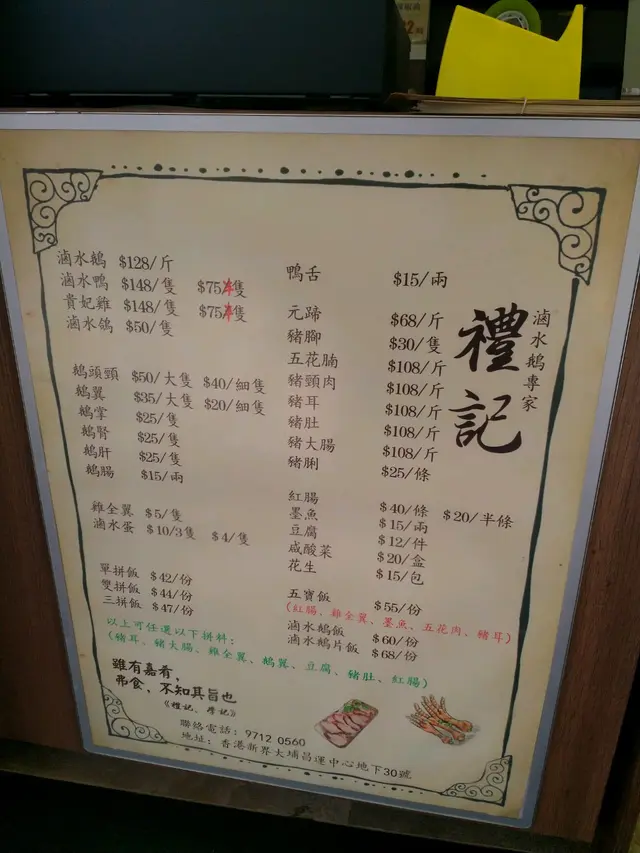 滷水鵝 $128/斤
滷水鴨 $148/隻 $75/半隻
貴妃雞 $148/隻 $75/半隻
滷水鴿 $50/隻
鵝頭頸 $50/大隻 $40/細隻
鵝翼 $35/大隻 $20/細隻
鵝掌 $25/隻
鵝腎 $25/隻
鵝肝 $25/隻
鵝腸 $15/兩
雞全翼 $5/隻
滷水蛋 $10/3隻 $4/隻
單拼飯 $42/份
雙拼飯 $44/份
三拼飯 $47/份
以上可任選以下拼料:
(豬耳、豬大腸、雞全翼、鵝翼、豆腐、豬肚、紅腸)
鴨舌 $15/兩
元蹄 $68/斤
豬腳 $30/隻
五花腩 $108/斤
豬頸肉 $108/斤
豬耳 $108/斤
豬肚 $108/斤
豬大腸 $108/斤
豬脷 $25/條
紅腸 $40/條 $20/半條
墨魚 $15/兩
豆腐 $12/件
咸酸菜 $20/盒
花生 $15/包
五寶飯 $55/份
(紅腸、雞全翼、墨魚、五花肉、豬耳)
滷水鵝飯 $60/份
滷水鵝片飯 $68/份
滷水鵝專家
禮記
雖有嘉肴，
弗食，不知其旨也
《禮記、學記》
聯絡電話: 9712 0560
地址: 香港新界大埔昌運中心地下30號